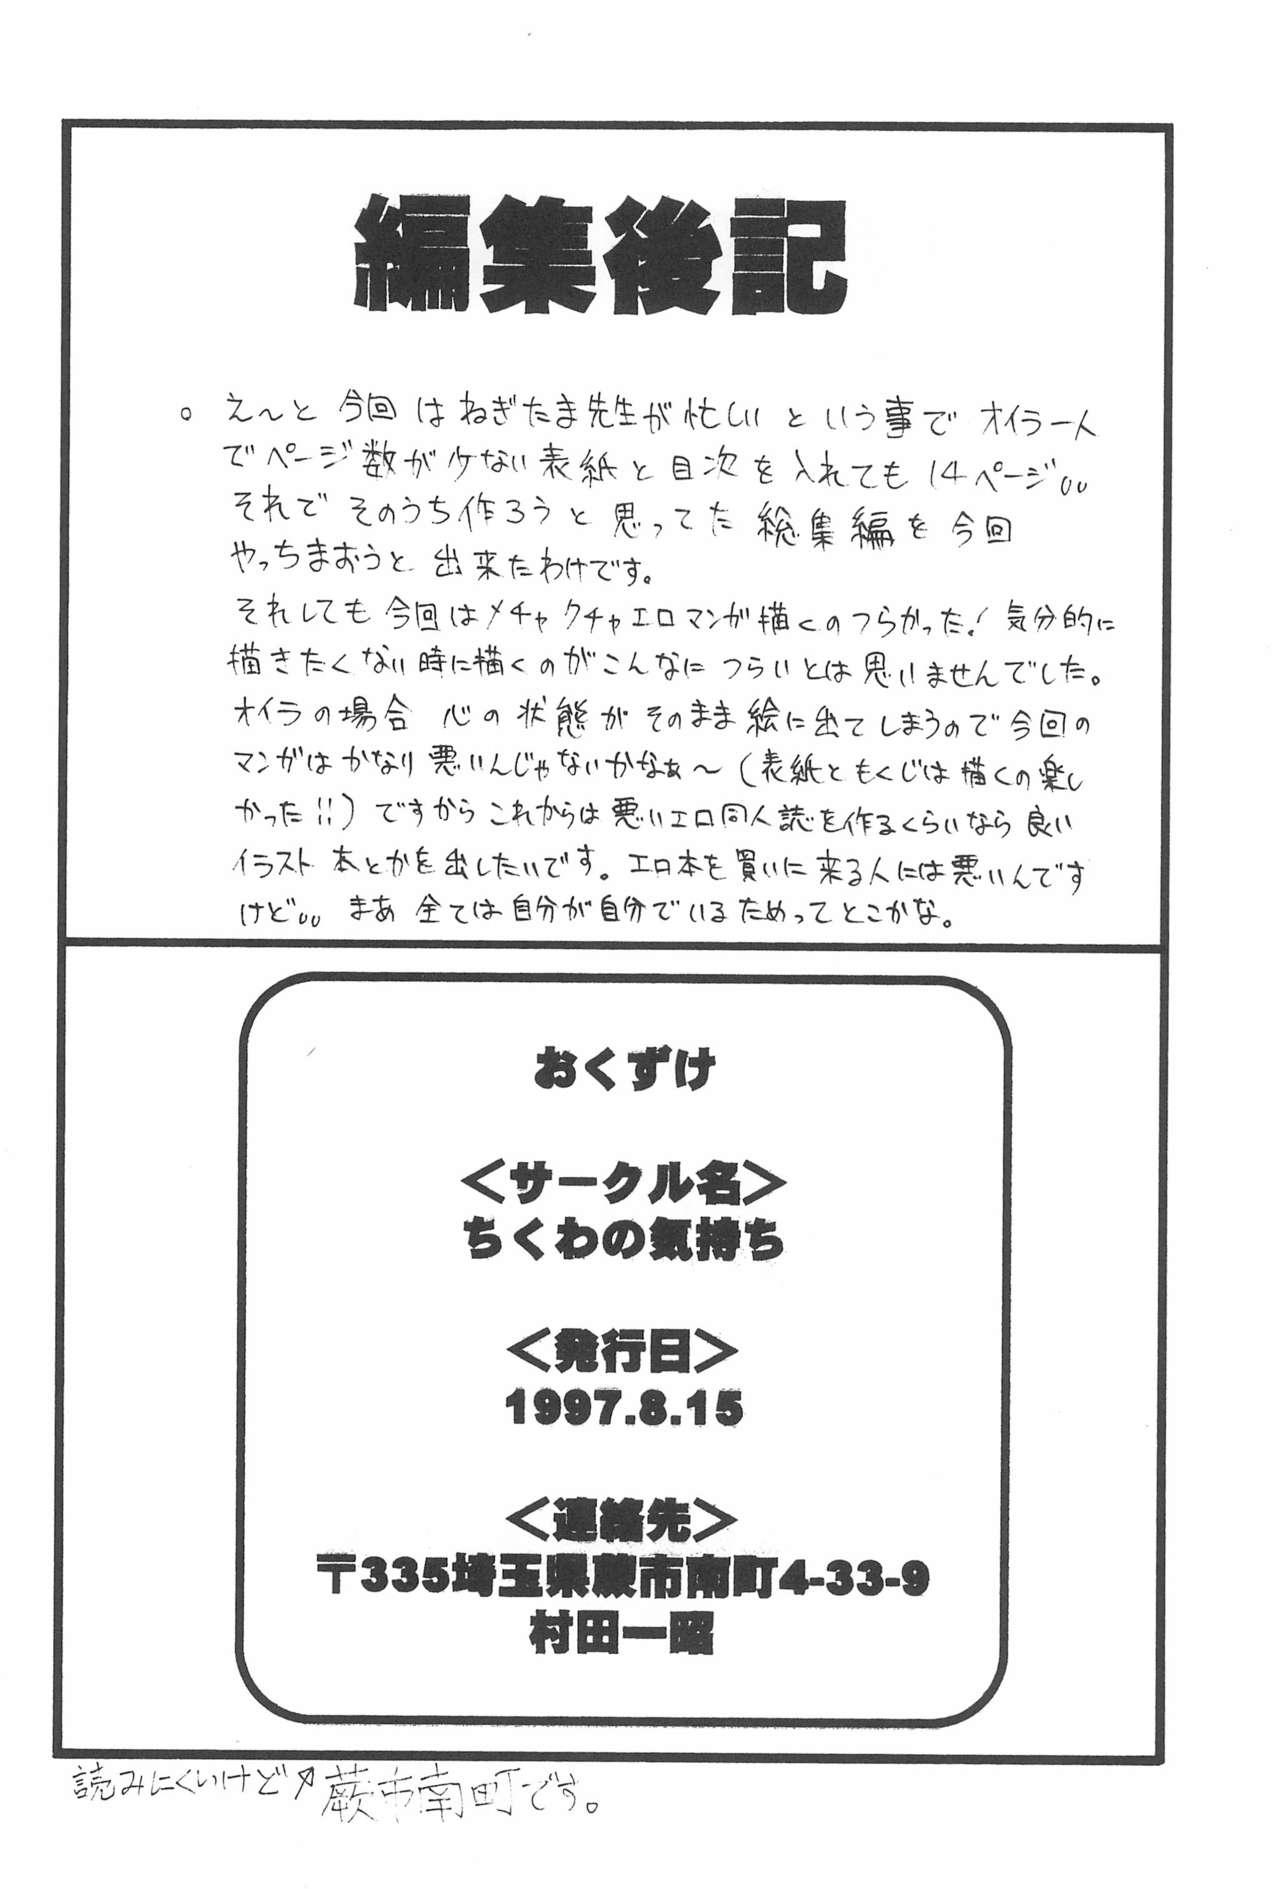 編集後記
。え〜と 今回 はねぎたま先生が忙しい という事で オイラ一人
でページ数が少ない表紙と目次を入れても 14ページ。。
それで そのうち作ろうと思ってた 総集編を今回
やっちまおうと 出来たわけです。
それしても今回はメチャクチャエロマンガ描くのつらかった! 気分的に
描きたくない時に描くのがこんなに つらいとは思いませんでした。
オイラの場合 心の状態がそのまま絵に出てしまうので今回の
マンガはかなり悪いんじゃないかなぁ〜(表紙ともくじは描くの楽し
かった!!)ですからこれからは悪いエロ同人誌を作るくらいなら良い
イラスト本とかを出したいです。エロ本を買いに来る人には悪いんです
けど。。 まあ 全ては自分が自分でいるためってとこかな。
おくずけ
＜サークル名＞
ちくわの気持ち
＜発行日＞
1997.8.15
＜連絡先＞
〒335埼玉県蕨市南町4-33-9
村田一昭
読みにくいけど↗蕨市南町です。